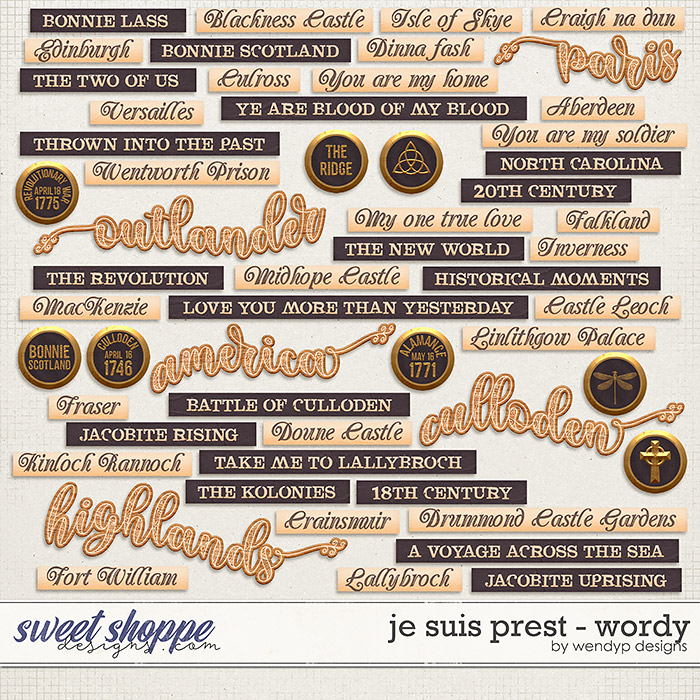 BONNIE LASS
Blackness Castle
Isle of Skye
Craigh na dun
Edinburgh
BONNIE SCOTLAND
Dinna fash
paris
THE TWO OF US
Culross
You are my home
Versailles
YE ARE BLOOD OF MY BLOOD
Aberdeen
You are my soldier
THROWN INTO THE PAST
THE
RIDGE
NORTH CAROLINA
Wentworth Prison
REVOLUTIONARY WAR
APRIL 18
1775
20TH CENTURY
outlander
My one true love
Falkland
THE NEW WORLD
Inverness
THE REVOLUTION
Midhope Castle
HISTORICAL MOMENTS
MacKenzie
LOVE YOU MORE THAN YESTERDAY
Castle Leoch
Linlithgow Palace
BONNIE
SCOTLAND
CULLODEN
APRIL 16
1746
america
ALAMANCE
MAY 16
1771
Fraser
BATTLE OF CULLODEN
culloden
JACOBITE RISING
Doune Castle
Kinloch Rannoch
TAKE ME TO LALLYBROCH
THE KOLONIES
18TH CENTURY
highlands
Crainsmuir
Drummond Castle Gardens
A VOYAGE ACROSS THE SEA
Fort William
Lallybroch
JACOBITE UPRISING
sweet shoppe
designs.com
je suis prest - wordy
by wendyp designs